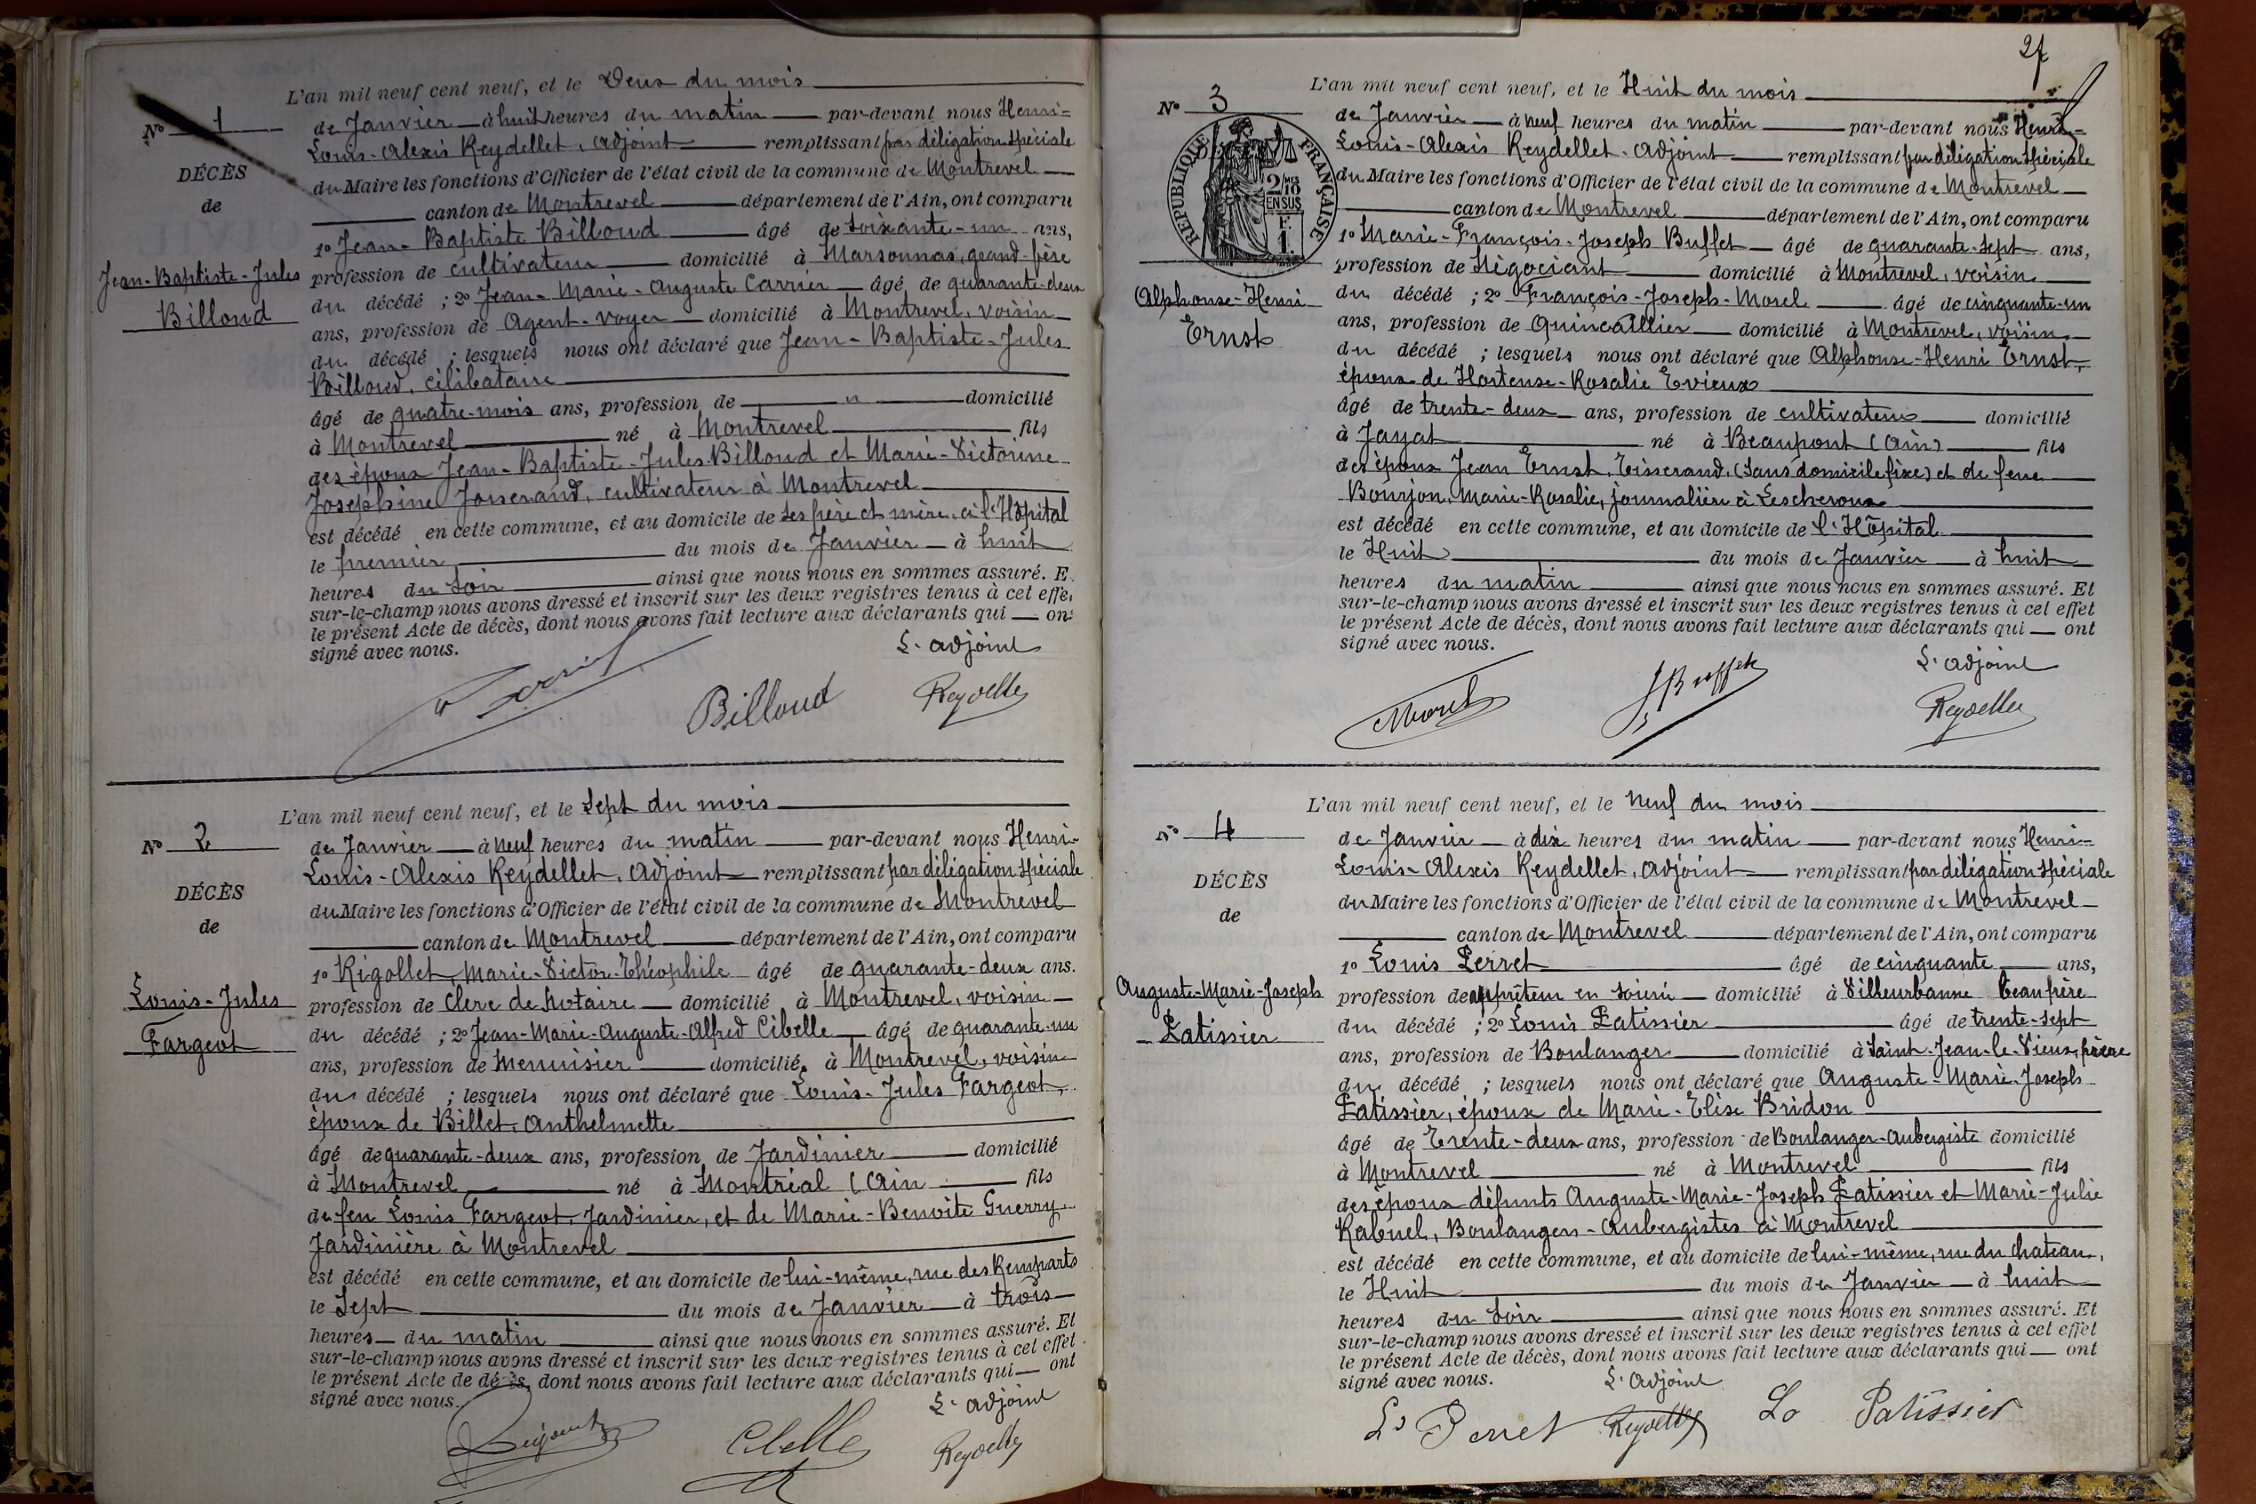 L'an mil neuf cent neuf, et le Deux du mois
N° 1
de Janvier à huit heures du matin par-devant nous Henri-
Louis-Alexis Reydellet, adjoint remplissant par délégation spéciale
DÉCÈS
du Maire les fonctions d'Officier de l'état civil de la commune de Montrevel
de
canton de Montrevel département de l'Ain, ont comparu
1° Jean-Baptiste Billoud âgé de soixante-un ans,
Jean-Baptiste-Jules
Billoud
profession de cultivateur domicilié à Marsonnas, grand-père
du décédé ; 2° Jean-Marie-Auguste Carrier âgé de quarante-deux
ans, profession de Agent-voyer domicilié à Montrevel, voisin
du décédé ; lesquels nous ont déclaré que Jean-Baptiste-Jules
Billoud, célibataire
âgé de quatre-mois ans, profession de " domicilié
à Montrevel né à Montrevel fils
des époux Jean-Baptiste-Jules Billoud et Marie-Victorine
Joséphine Josserand, cultivateurs à Montrevel
est décédé en cette commune, et au domicile de ses père et mère, à l'Hôpital
le premier du mois de Janvier à huit
heures du soir ainsi que nous nous en sommes assuré. E
sur-le-champ nous avons dressé et inscrit sur les deux registres tenus à cet effe
le présent Acte de décès, dont nous avons fait lecture aux déclarants qui on
signé avec nous.
L'adjoint
Billoud Reydellet
L'an mil neuf cent neuf, et le Sept du mois
N° 2
de Janvier à neuf heures du matin par-devant nous Henri-
Louis-Alexis Reydellet, adjoint remplissant par délégation spéciale
DÉCÈS
du Maire les fonctions d'Officier de l'état civil de la commune de Montrevel
de
canton de Montrevel département de l'Ain, ont comparu
1° Rigollet Marie-Victor-Théophile âgé de quarante-deux ans.
Louis-Jules
Fargeot
profession de clerc de notaire domicilié à Montrevel, voisin
du décédé ; 2° Jean-Marie-Auguste-Alfred Cibelle âgé de quarante-un
ans, profession de Menuisier domicilié à Montrevel, voisin
du décédé ; lesquels nous ont déclaré que Louis-Jules Fargeot,
époux de Billet, Anthelmette
âgé de quarante-deux ans, profession de Jardinier domicilié
à Montrevel né à Montréal (Ain fils
de feu Louis Fargeot, Jardinier, et de Marie-Benoite Guerry
Jardinière à Montrevel
est décédé en cette commune, et au domicile de lui-même, rue des Remparts
le Sept du mois de Janvier à trois
heures du matin ainsi que nous nous en sommes assuré. Et
sur-le-champ nous avons dressé et inscrit sur les deux registres tenus à cet effet
le présent Acte de décès, dont nous avons fait lecture aux déclarants qui ont
signé avec nous.
L'adjoint
Cibelle Reydellet
L'an mil neuf cent neuf, et le Huit du mois
N° 3
RÉPUBLIQUE FRANÇAISE
2/10 MES EN SUS
F. 1
de Janvier à neuf heures du matin par-devant nous Henri-
Louis-Alexis Reydellet, adjoint remplissant par délégation spéciale
du Maire les fonctions d'Officier de l'état civil de la commune de Montrevel
canton de Montrevel département de l'Ain, ont comparu
1° Marie-François-Joseph Buffet âgé de quarante-sept ans,
profession de Négociant domicilié à Montrevel, voisin
Alphonse-Henri
Ernst
du décédé ; 2° François-Joseph-Morel âgé de cinquante-un
ans, profession de Quincaillier domicilié à Montrevel, voisin
du décédé ; lesquels nous ont déclaré que Alphonse-Henri Ernst,
époux de Hortense-Rosalie Evieux
âgé de trente-deux ans, profession de cultivateur domicilié
à Jayat né à Beaupont (Ain) fils
des époux Jean Ernst, Tisserand, (sans domicile fixe) et de feue
Bourjon, Marie-Rosalie, journalière à Lescheroux
est décédé en cette commune, et au domicile de l'Hôpital
le Huit du mois de Janvier à huit
heures du matin ainsi que nous nous en sommes assuré. Et
sur-le-champ nous avons dressé et inscrit sur les deux registres tenus à cet effet
le présent Acte de décès, dont nous avons fait lecture aux déclarants qui ont
signé avec nous.
L'adjoint
Morel J Buffet Reydellet
L'an mil neuf cent neuf, et le neuf du mois
N° 4
de Janvier à dix heures du matin par-devant nous Henri-
Louis-Alexis Reydellet, adjoint remplissant par délégation spéciale
DÉCÈS
du Maire les fonctions d'Officier de l'état civil de la commune de Montrevel
de
canton de Montrevel département de l'Ain, ont comparu
1° Louis Perret âgé de cinquante ans,
Auguste-Marie-Joseph
Patissier
profession de apprêteur en soierie domicilié à Villeurbanne beau frère
du décédé ; 2° Louis Patissier âgé de trente-sept
ans, profession de Boulanger domicilié à Saint-Jean-le-Vieux, frère
du décédé ; lesquels nous ont déclaré que Auguste-Marie-Joseph
Patissier, époux de Marie-Elise Bridon
âgé de Trente-deux ans, profession de Boulanger-Aubergiste domicilié
à Montrevel né à Montrevel fils
des époux défunts Auguste-Marie-Joseph Patissier et Marie-Julie
Rabuel, Boulangers-Aubergistes à Montrevel
est décédé en cette commune, et au domicile de lui-même, rue du Chateau,
le Huit du mois de Janvier à huit
heures du soir ainsi que nous nous en sommes assuré. Et
sur-le-champ nous avons dressé et inscrit sur les deux registres tenus à cet effet
le présent Acte de décès, dont nous avons fait lecture aux déclarants qui ont
signé avec nous.
L'adjoint
Ls Perret Reydellet Ls Patissier